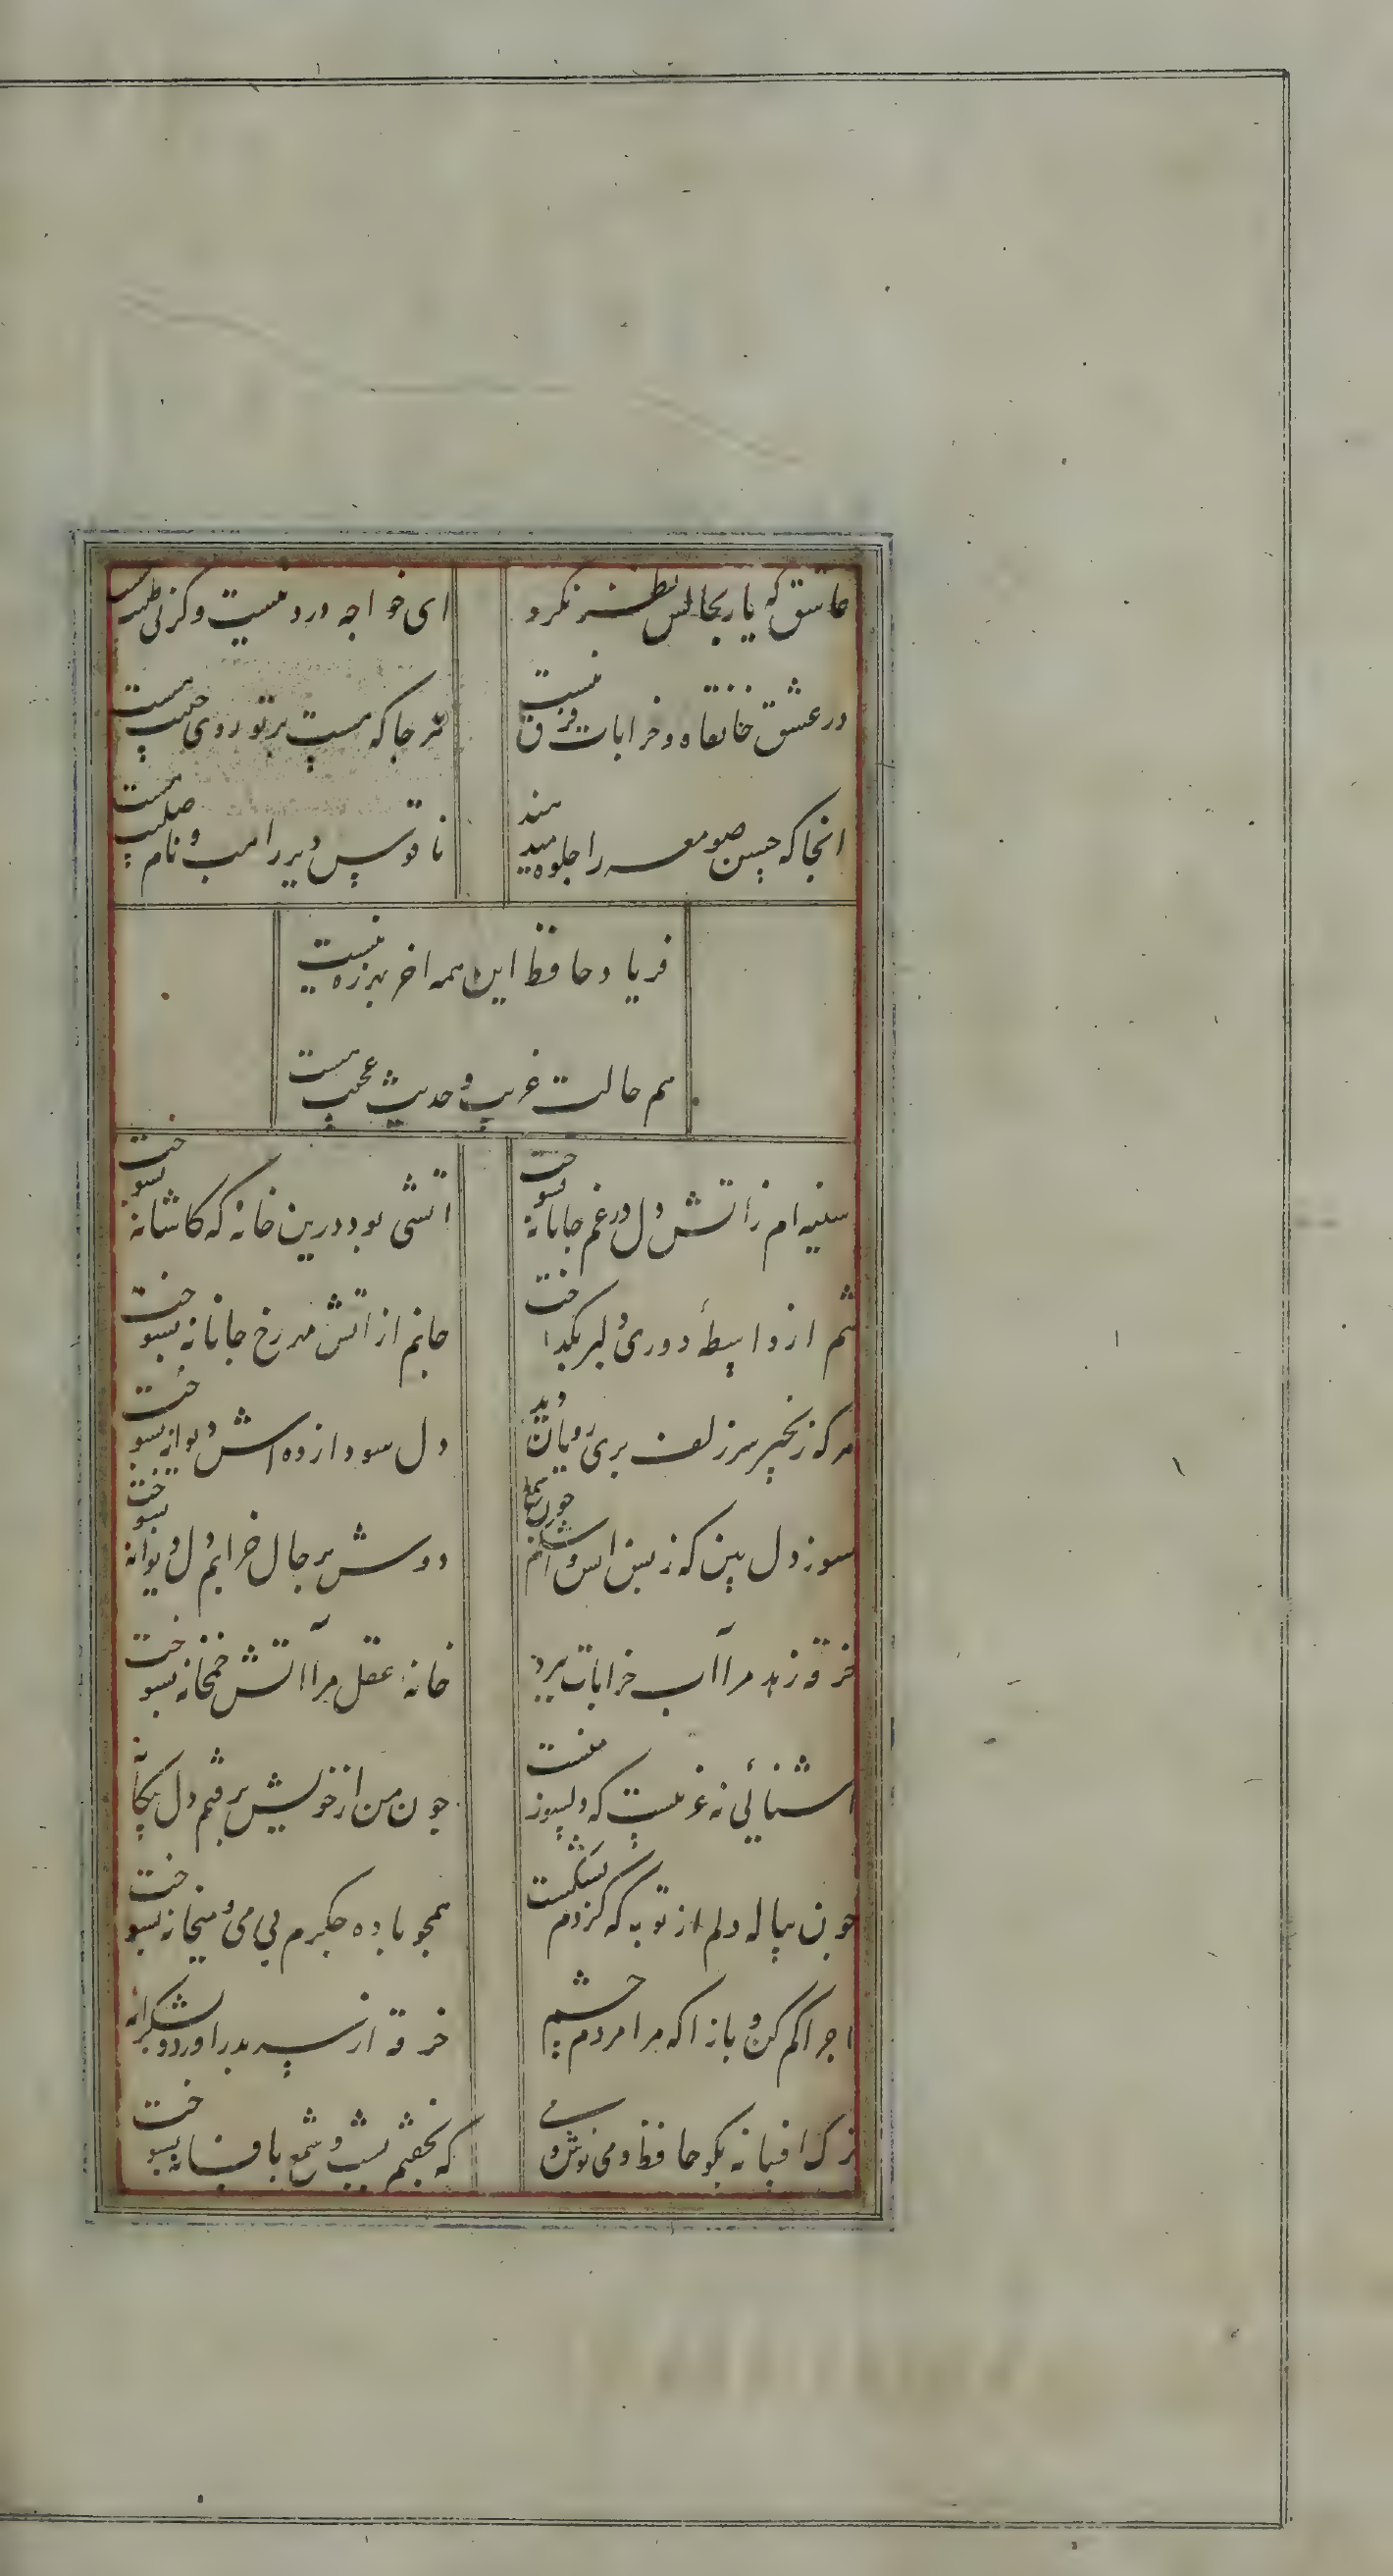 عاشق که یار بحالش نظر نکرد
ای خواجه درد نیست وگرنی طبیب هست
در عشق خانقاه و خرابات فرق نیست
هر جا که هست پرتو روی حبیب هست
انجا که حسن صومعه را جلوه میدهند
ناقوس دیر راهب و نام صلیب هست
فریاد حافظ این همه اخر بهرزه نیست
هم حالت غریب و حدیث عجیب هست
سینه ام ز اتش دل در غم جانانه بسوخت
اتشی بود درین خانه که کاشانه بسوخت
تنم از واسطهٔ دوری دلبر بگداخت
جانم از اتش مهر رخ جانانه بسوخت
هر که زنجیر سر زلف پری رویان دید
دل سودازده اش دیوانه بسوخت
سوز دل بین که ز بس اتش و اشکم چون شمع
دوش بر حال خرابم دل دیوانه بسوخت
خرقه زهد مرا آب خرابات ببرد
خانه عقل مرا آتش خمخانه بسوخت
اشنائی نه غریبست که دلسوز منست
چون من از خویش برفتم دل بیگانه
چون پیاله دلم از توبه که کردم بشکست
همچو باده جگرم بی می و میخانه بسوخت
ماجرا کم کن و باز اکه مرا مردم چشم
خرقه از سر بدر اورد و بشکرانه
ترک افسانه بگو حافظ و می نوش دمی
که نخفتیم شب و شمع بافسانه بسوخت